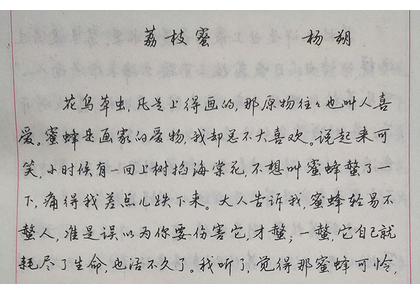 荔枝蜜 杨朔
花鸟草虫,凡是上得画的,那原物往々也叫人喜
爱。蜜蜂是画家的爱物,我却总不大喜欢。说起来可
笑,小时候有一回上树掐海棠花,不想叫蜜蜂螫了一
下,痛得我差点儿跌下来。大人告诉我,蜜蜂轻易不
螫人,准是误以为你要伤害它,才螫;一螫,它自己就
耗尽了生命,也活不久了。我听了,觉得那蜜蜂可怜,